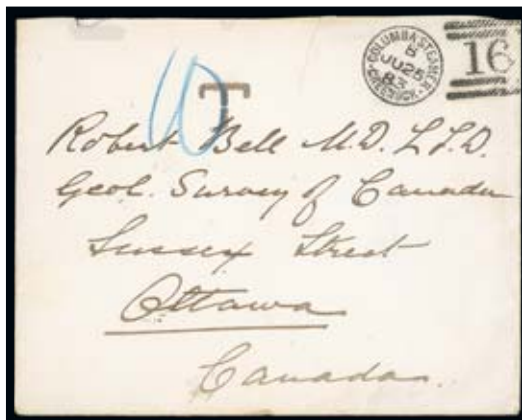 COLUMBA STEAMER
B
JU 25
83
GREENOCK
16
10
T
Robert Bell M.D. L.L.D.
Geol. Survey of Canada
Sussex Street
Ottawa
Canada.